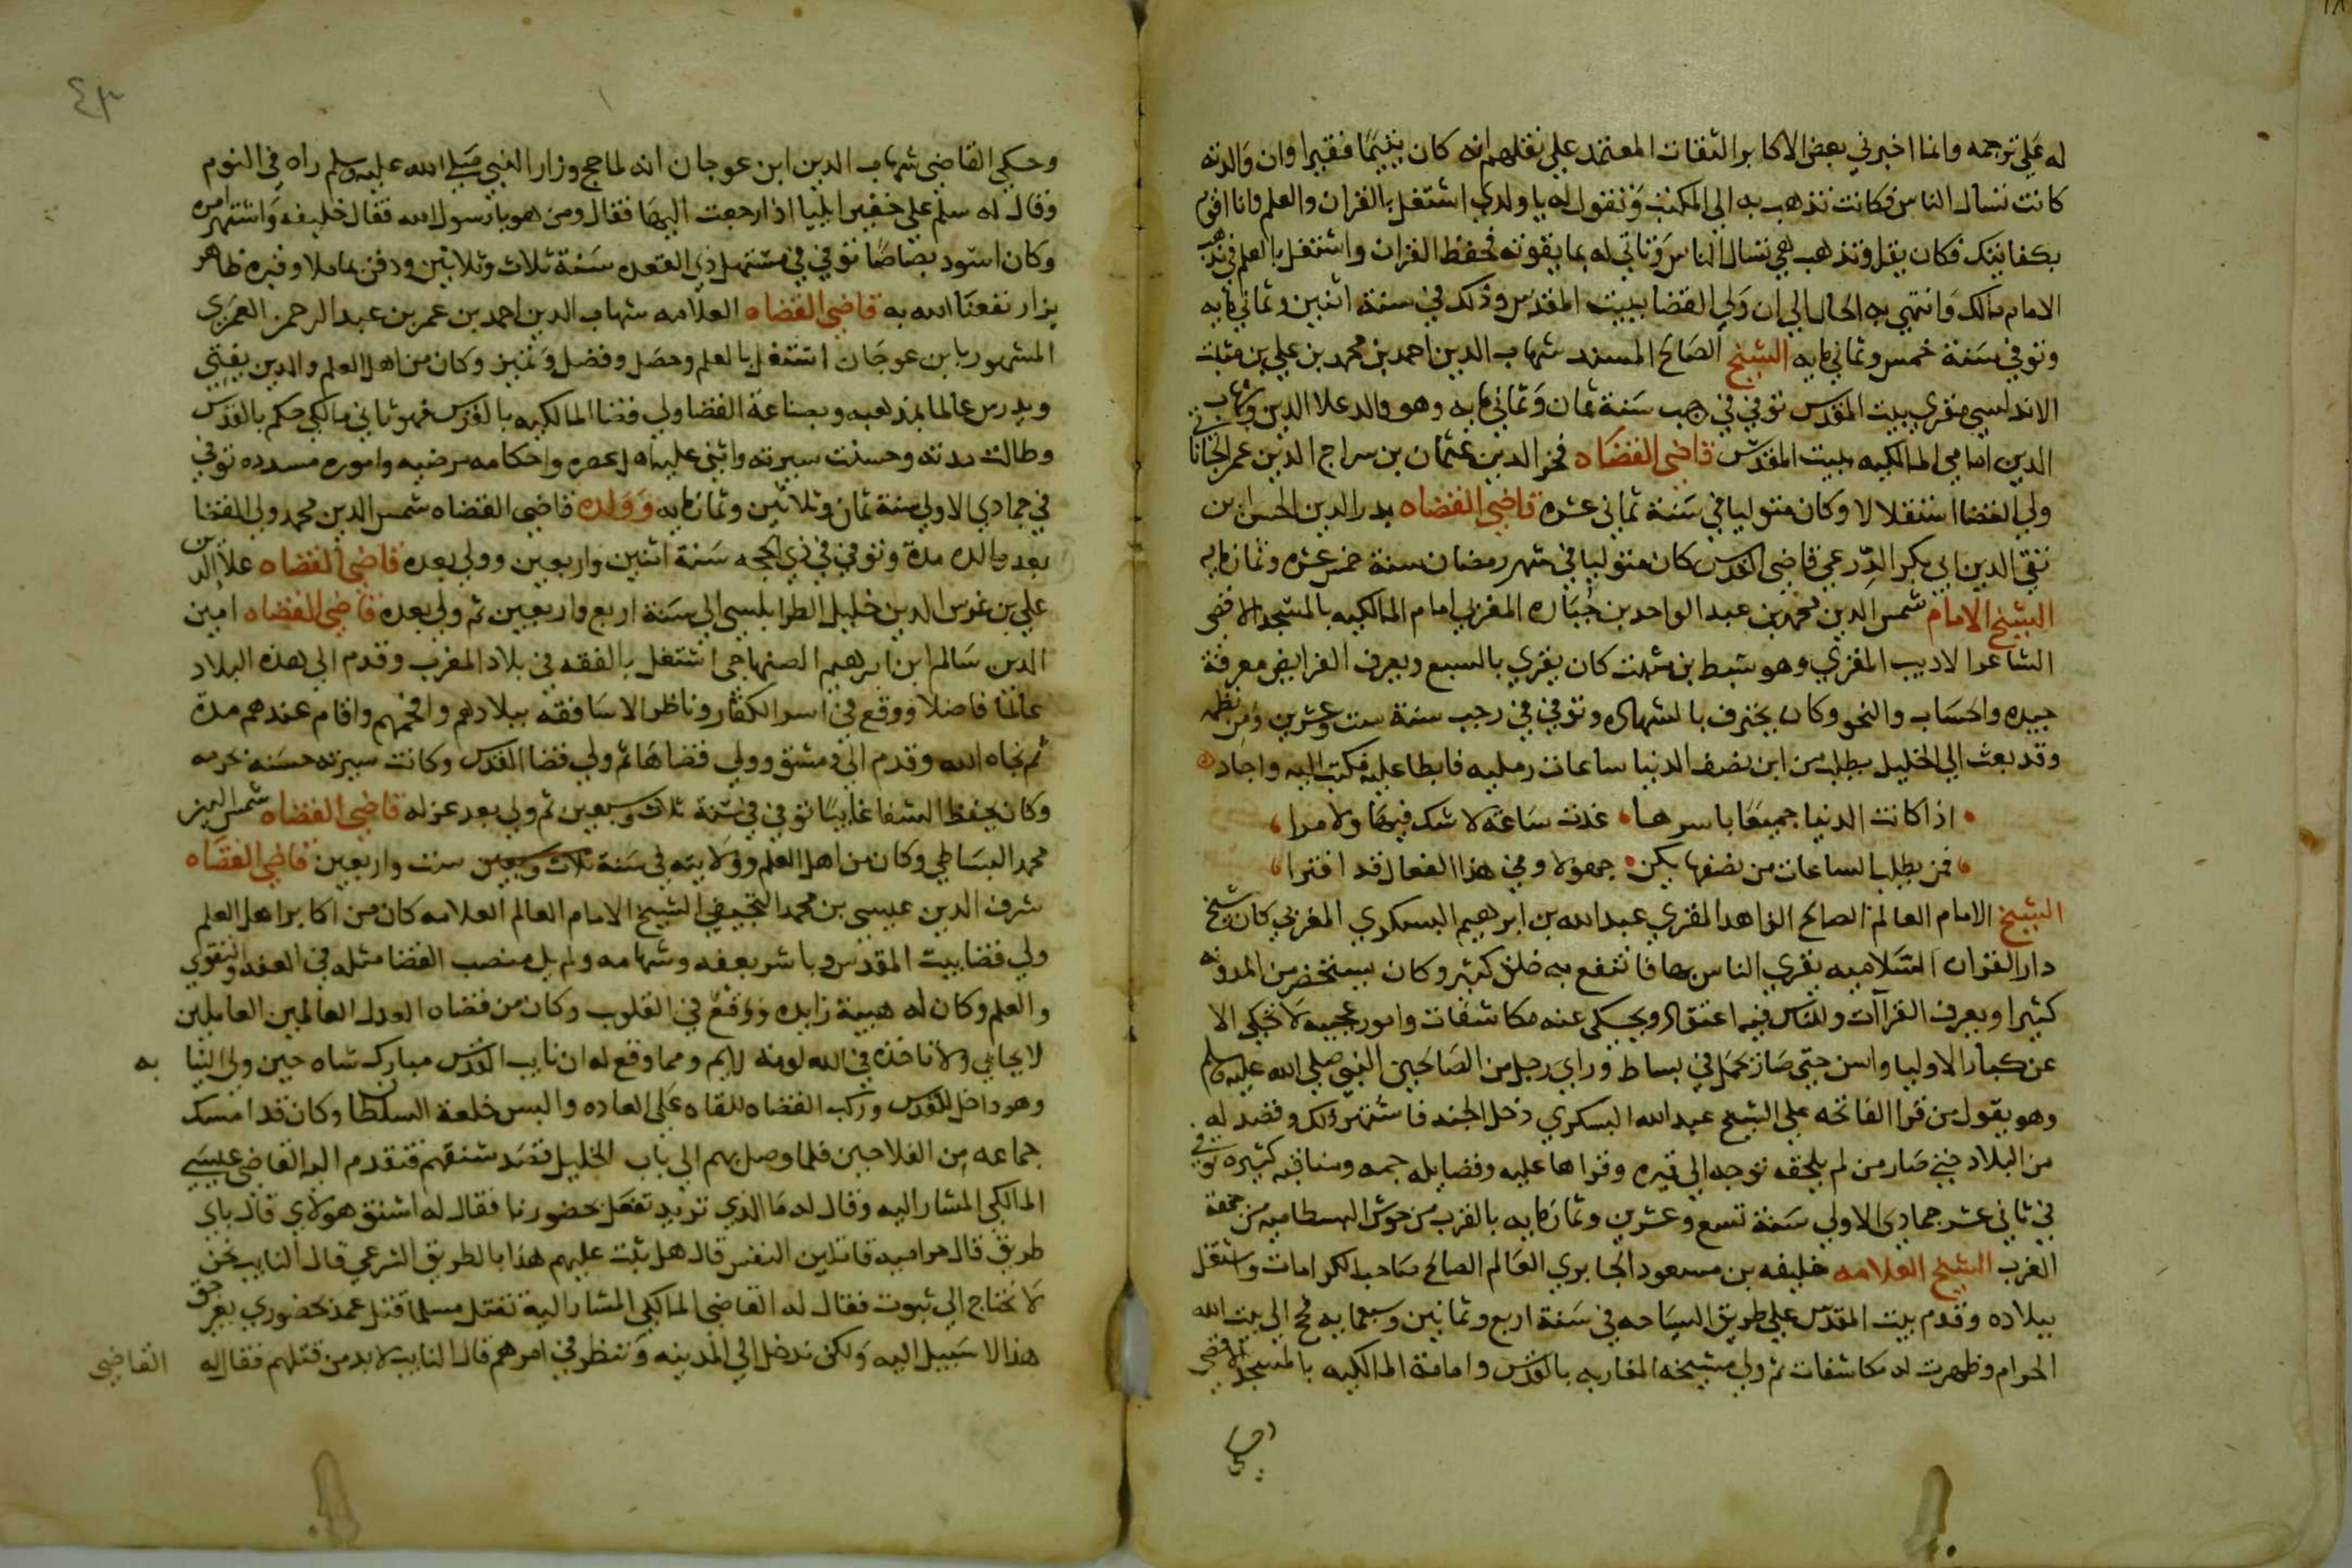 له على ترجمه وانما اخبرني بعض الاكابر الثقات المعتمد علي نقلهم انه كان يتيمًا فقيرا وان والدته
كانت تسال الناس فكانت تذهب به الي المكتب وتقول له يا ولدي اشتغل بالقران والعلم وانا اقوم
بكفايتك فكان يقرا وتذهب هي تسال الناس وتاتي له بما يقوته فحفظ القران واشتغل بالعلم في مذهب
الامام مالك وانتهي به الحال الي ان ولي القضا ببيت المقدس وذلك في سنة اثنين وثماني مايه
وتوفي سنة خمس وثماني مايه الشيخ الصالح المسند شهاب الدين احمد بن محمد بن علي بن مثبت
الاندلسي مقري بيت المقدس توفي في رجب سنة ثمان وثماني مايه وهو والد علا الدين وشهاب
الدين امامي المالكيه ببيت المقدس قاضي القضاه فخر الدين عثمان بن سراج الدين عمر
ولي القضا استقلالا وكان متوليا في سنة ثماني عشره قاضي القضاه بدر الدين الحسن بن
تقي الدين ابي بكر الدرعي قاضي القدس كان متوليا في شهر رمضان سنة خمس عشره وثمانمايه
الشيخ الامام شمس الدين محمد بن عبد الواحد بن جُبَاره المغربي امام المالكيه بالمسجد الاقصى
الشاعر الاديب المقري وهو سبط بن مثبت كان يقري بالسبع ويعرف الفرايض معرفة
جيده والحساب والنحو وكان يحترف بالشهاده وتوفي في رجب سنة ست وعشرين ومن نظمه
وقد بعث الي الخليل يطلب من ابن نصف الدنيا ساعات رمليه فابطا عليه فكتب اليه واجاد
اذا كانت الدنيا جميعًا باسرها غدت ساعة لا شك فيها ولا مرا
فمن يطلب الساعات من نصفها يكن جهولا وفي هذا الفعال قد افترا
الشيخ الامام العالم الصالح الزاهد المقري عبد الله بن ابرهيم البسكري المغربي كان شيخ
دار القران السلاميه يقري الناس بها فانتفع به خلق كثير وكان يستحضر من المدونه
كثيرا ويعرف القراآت وللناس فيه اعتقاد ويحكى عنه مكاشفات وامور عجيبه لا تحكي الا
عن كبار الاوليا واسن حتى صار يحمل في بساط وراي رجل من الصالحين النبي صلي الله عليه وسلم
وهو يقول من قرا الفاتحه علي الشيخ عبد الله البسكري دخل الجنه فاشتهر ذلك وقصد له
من البلاد حتي صار من لم يلحقه توجه الي قبره وقراها عليه وفضايله جمه ومناقبه كثيره توفي
في ثاني عشر جمادي الاولي سنة تسع وعشرين وثمانمايه بالقرب من حوش البسطاميه من جهة
الغرب الشيخ العلامه خليفه بن مسعود الجابري العالم الصالح صاحب الكرامات واشتغل
ببلاده وقدم بيت المقدس علي طريق السياحه في سنة اربع وثمانين وسبعمايه فحج الي بيت الله
الحرام وظهرت له مكاشفات ثم ولي مشيخه المغاربه بالقدس وامامة المالكيه بالمسجد الاقصى
وحكي القاضي شهاب الدين ابن عوجان انه لما حج وزار النبي صلي الله عليه وسلم راه في النوم
وقال له سلم علي خفير ايليا اذا رجعت اليها فقال ومن هو يا رسول الله فقال خليفه واشتهر امره
وكان اسود بصاصًا توفي في مستهل ذي القعده سنة ثلاث وثلاثين ودفن بماملا وقبره ظاهر
يزار نفعنا الله به قاضي القضاه العلامه شهاب الدين احمد بن عمر بن عبد الرحمن العمري
المشهور بابن عوجان اشتغل بالعلم وحصل وفضل وتميز وكان من اهل العلم والدين يفتي
ويدرس عالما بمذهبه وبصناعة القضا ولي قضا المالكيه بالقدس فهو ثاني مالكي حكم بالقدس
وطالت مدته وحسنت سيرته واثني عليه اهل عصره واحكامه مرضيه واموره مسدده توفي
في جمادي الاولي سنة ثمان وثلاثين وثمانمايه وولده قاضي القضاه شمس الدين محمد ولي القضا
بعد والده مدة وتوفي في ذي الحجه سنة اثنين واربعين وولي بعده قاضي القضاه علاالدين
علي بن غرس الدين خليل الطرابلسي الي سنة اربع واربعين ثم ولي بعده قاضي القضاه امين
الدين سالم ابن ابرهيم الصنهاجي اشتغل بالفقه في بلاد المغرب وقدم الي هذه البلاد
عالمًا فاضلا ووقع في اسر الكفار وناظر الاساقفه ببلادهم وافحمهم واقام عندهم مدة
ثم نجاه الله وقدم الي دمشق وولي قضاها ثم ولي قضا القدس وكانت سيرته حسنه بحرمه
وكان يحفظ الشفا غايبًا توفي في سنة ثلاث وسبعين ثم ولي بعد عزله قاضي القضاه شمس الدين
محمد البساطي وكان من اهل العلم وولايته في سنة ثلاث وسبعين ست واربعين قاضي القضاه
شرف الدين عيسى بن محمد الشيخ الامام العالم العلامه كان من اكابر اهل العلم
ولي قضا بيت المقدس وباشر بعفه وشهامه ولم يل منصب القضا مثله في العفه والتقوي
والعلم وكان له هيبة زايده ووقع في القلوب وكان من قضاه العدل العالمين العاملين
لا يحابي ولا تاخذه في الله لومة لايم ومما وقع له ان نايب القدس مبارك شاه حين ولي النيا به
وهو داخل للقدس وركب القضاه للقاه على العاده والبس خلعة السلطان وكان قد امسك
جماعه من الفلاحين فلما وصل بهم الي باب الخليل قصد شنقهم فتقدم اليه القاضي عيسى
المالكي المشار اليه وقال له ما الذي تريد تفعل بحضورنا فقال له اشنق هولاي قال باي
طريق قال حراميه قاتلين النفس قال هل ثبت عليهم هذا بالطريق الشرعي قال النايب نحن
لا نحتاج الي ثبوت فقال له القاضي المالكي المشار اليه تقتل مسلما قتل عمد بحضوري بغير حق
هذا لا سبيل اليه ولكن ندخل الي المدينه وننظر في امرهم قال النايب لا بد من قتلهم فقال له القاضي